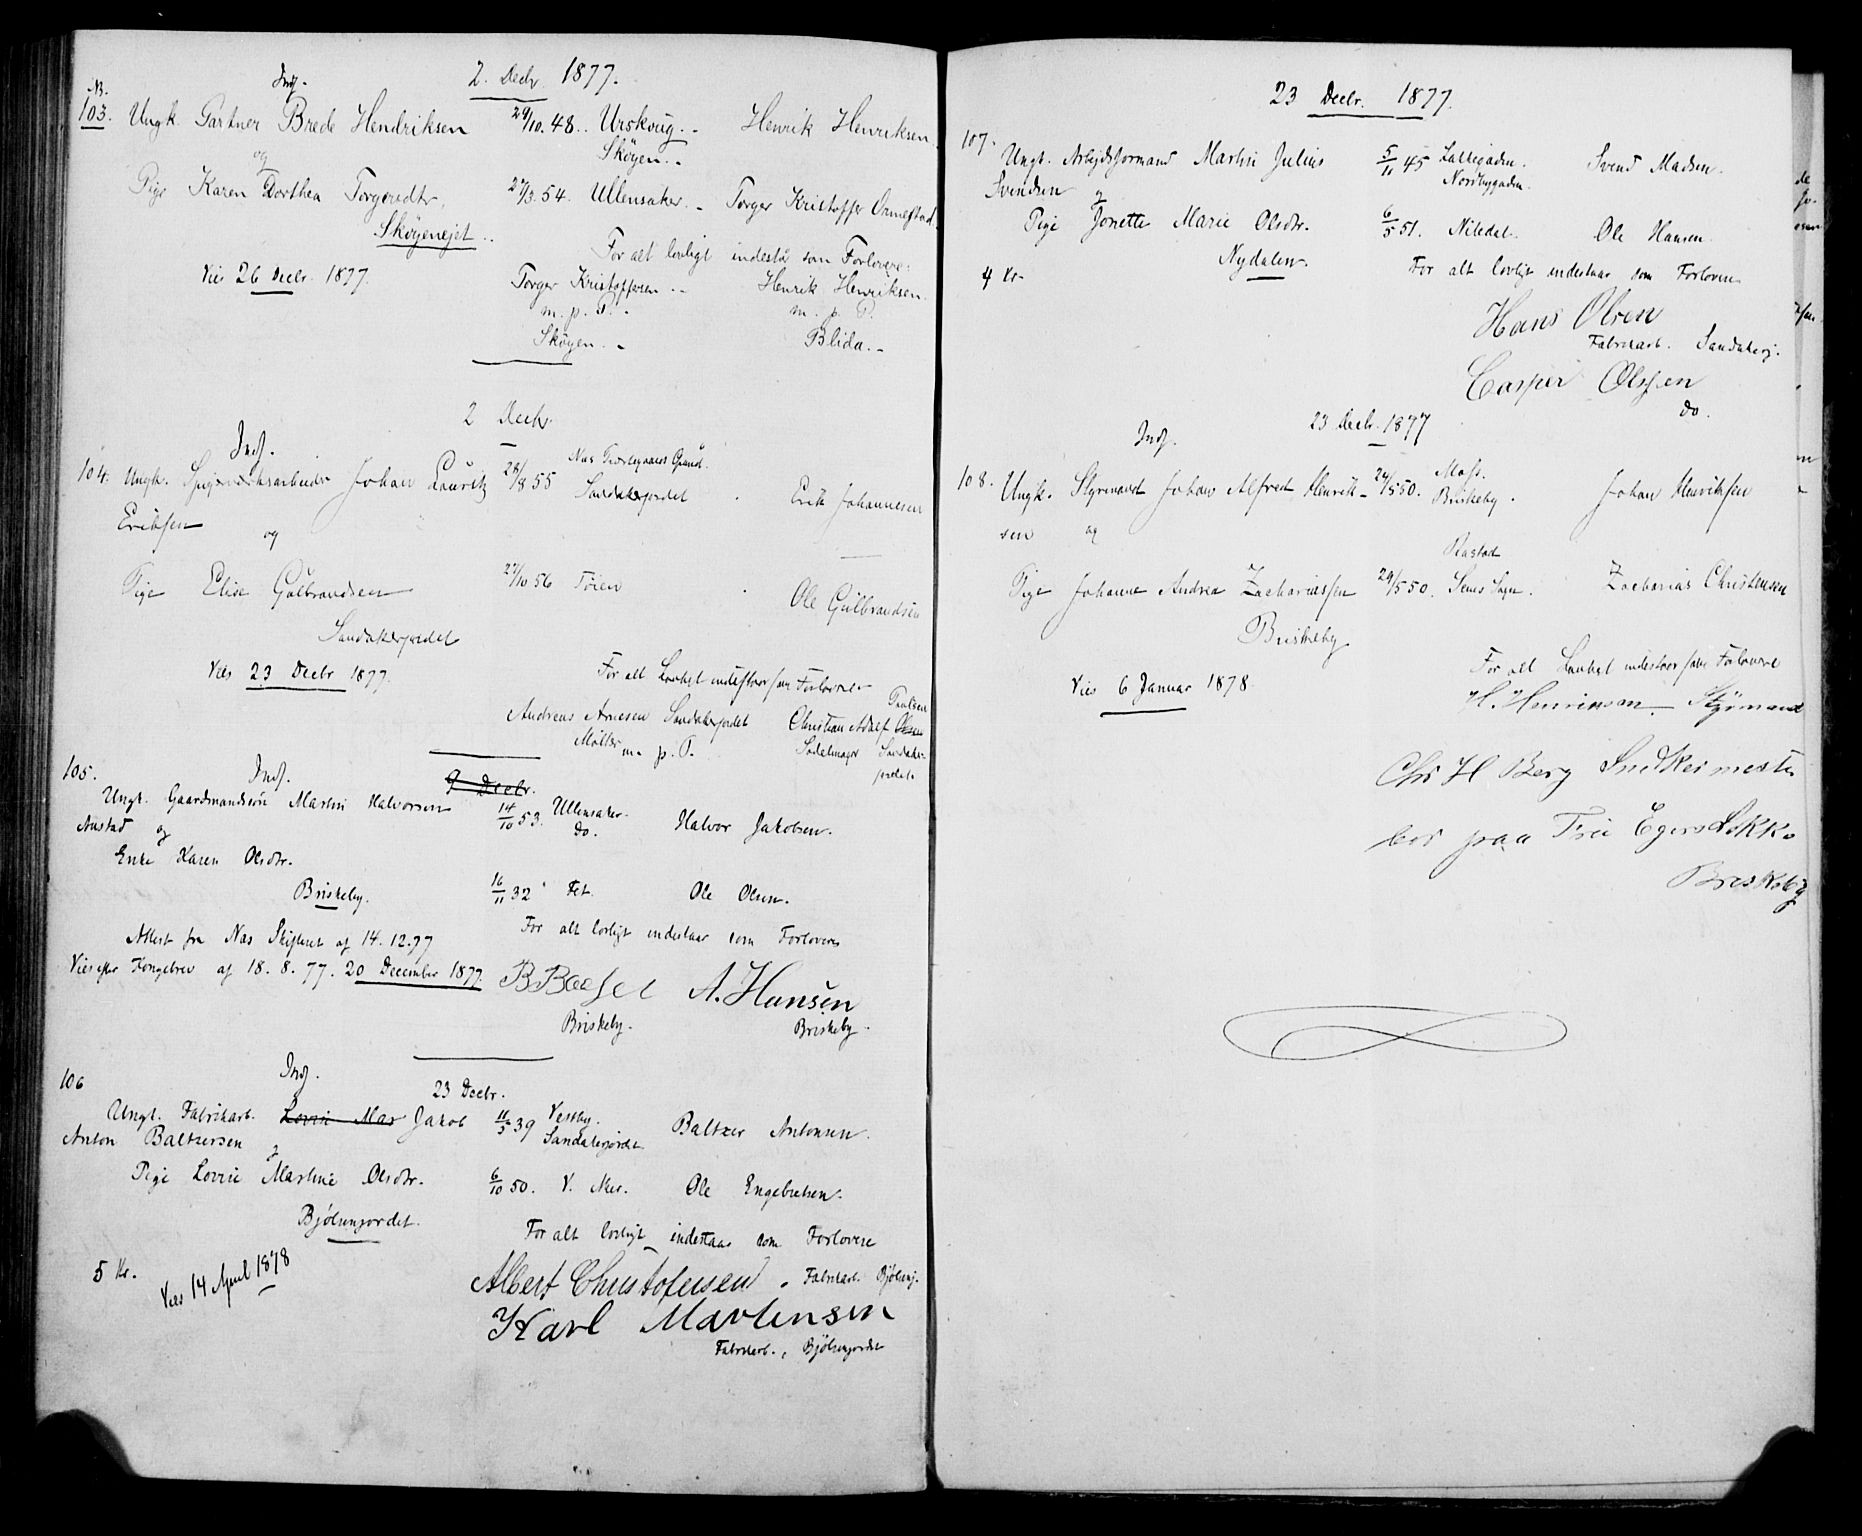 2. Decbr 1877.
No.
Indf.
103. Ungk. Gartner Brede Hendriksen 29/10. 48.. Urskoug.. Henrik Henriksen
og Skøyen..
Pige Karen Dorthea Torgersdtr, 27/3. 54. Ullensaker.. Torger Kristoffer Ormestad.
Skøyenejet..
For alt lovligt indestå som Forlovere:
Viet 26 Decbr. 1877. Torger Kristoffersen.. Henrik Henriksen.
m. p. P. m. p. P.
Skøyen.. Blida..
2 Decbr.
Indf.
104. Ungk. Johan Lauritz 28/8 55 Sandakerjordet Erik Johannesen
Eriksen og
Pige Elise Gulbrandsen 27/10 56 Tøien Ole Gulbrandsen
Sandakerjordet
Viet 23 Decbr 1877.
For alt Lovligt indestaar som Forlovere
Paulsen
Andreas Arnesen Sandakerjordet Christian Adolf Olsen
Møller m. p. P. Sadelmager Sandaker-
jordet.
105.
Indf. 9 Decbr.
Ungk. Gaardmandssøn Martin Halvorsen 14/10 53. Ullensaker. Halvor Jakobsen.
Austad og do.
Enke Karen Olsdtr. 16/11 32 Fet. Ole Olsen.
Briskeby.
For alt lovligt indestaar som Forlovere
Attest fra Nas Skifteret af 14. 12. 77
Viet efter Kongebrev af 18. 8. 77. 20 December 1877.
A. Hansen
Briskeby. Briskeby.
106
Indf. 23 Decbr.
Ungk. Fabrikarb. Jakob 11/5 39 Vestby. Baltzer Antonsen.
Anton Baltzersen og Sandakerjordet
Pige Lovise Martine Olsdtr. 6/10 50. V. Aker. Ole Engebretsen.
Bjølsenjordet.
For alt lovligt indestaar som Forlovere
5 Kr. Viet 14 April 1878
Albert Christofersen, Fabrikarb. Bjølsenj.
Karl Martensen
Fabrikarb., Bjølsenjordet
23 Decbr. 1877.
107.
Ungk. Arbejdsformand Martin Julius 5/11 45 Lakkegaden. Svend Madsen.
Svendsen og Nordbygaden.
Pige Jonette Marie Olsdtr. 6/5 51. Nitedal. Ole Hansen.
Nydalen.
4 Kr.
For alt lovligt indestaar som Forlovere
Hans Olsen
Fabrikarb. Sandakerj.
Casper Olssen
do.
23 Decbr. 1877
Indf.
108. Ungk. Styrmand Johan Alfred Henrik- 24/5 50. Moss. Johan Henriksen
sen og Briskeby.
Pige Johanne Andrea Zachariassen 29/5 50. Sems Sogn. Zacharias Christensen
Briskeby
For alt Lovligt indestaar som Forlovere
Viet 6 Januar 1878.
H. Henriksen. Styrmand
Chr H Berg Snekkermester
bor paa Frie Egers Løkke
Briskeby